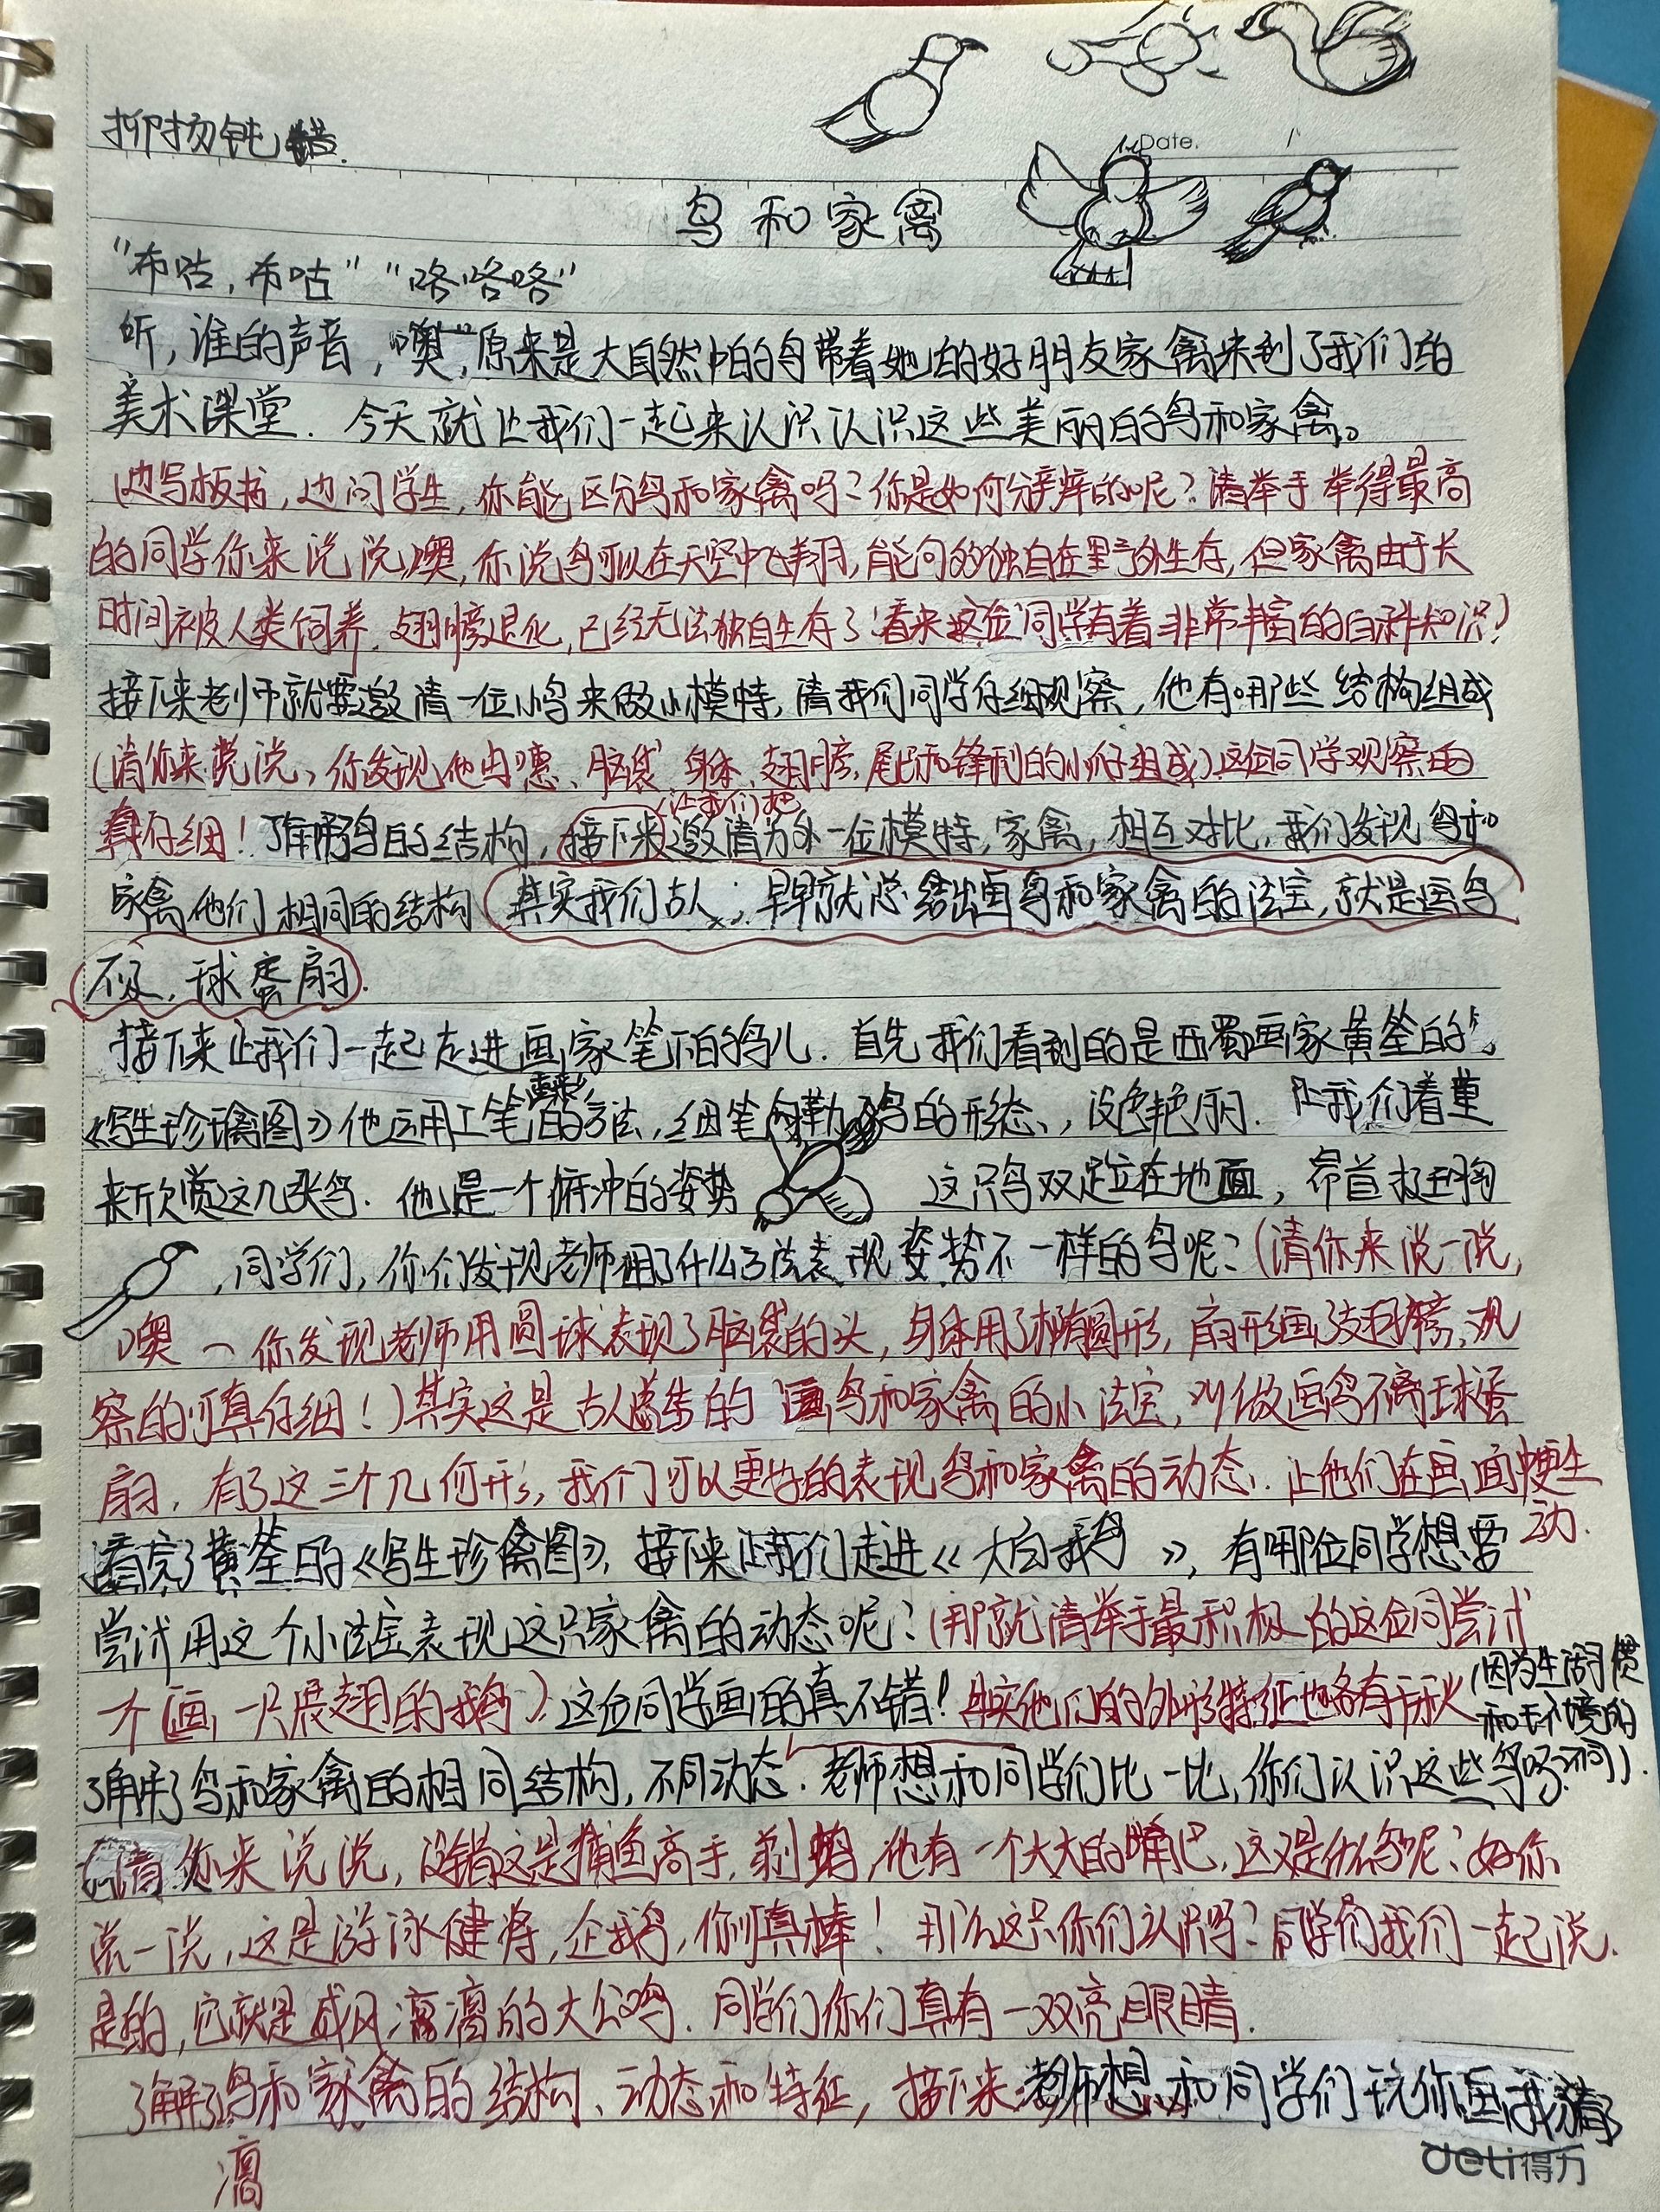 抑扬钝错.
Date.
鸟和家禽
"布咕,布咕" "咯咯咯"
听,谁的声音,"噢",原来是大自然中的鸟带着她的好朋友家禽来到了我们的
美术课堂.今天就让我们一起来认识认识这些美丽的鸟和家禽。
(边写板书,边问学生,你能区分鸟和家禽吗?你是如何分辨的呢?请举手举得最高
的同学你来说说,噢,你说鸟可以在天空中飞翔,能够独自在野外生存,但家禽由于长
时间被人类饲养,翅膀退化,已经无法独自生存了!看来这位同学有着非常丰富的百科知识)
接下来老师就要邀请一位小鸟来做小模特,请我们同学仔细观察,他有哪些结构组成
(请你来说说,你发现他由嘴、脑袋、身体、翅膀、尾巴和锋利的小爪组成)这位同学观察的
真仔细!了解了鸟的结构,接下来邀请另外一位模特,家禽,相互对比,我们发现鸟和
(让我们把
家禽他们相同的结构 其实我们古人,早早就总结出画鸟和家禽的法宝,就是画鸟
不离,球蛋扇.
接下来让我们一起走进画家笔下的鸟儿.首先我们看到的是西蜀画家黄筌的
《写生珍禽图》他运用工笔重彩的方法,细笔勾勒鸟的形态,设色艳丽.让我们着重
来欣赏这几张鸟.他是一个俯冲的姿势 这只鸟双足立在地面,昂首挺胸
,同学们,你们发现老师用了什么方法表现姿势不一样的鸟呢?(请你来说一说,
噢~你发现老师用圆球表现了脑袋的头,身体用了椭圆形,扇形画了翅膀,观
察的可真仔细!)其实这是古人总结的画鸟和家禽的小法宝,叫做画鸟不离球蛋
扇,有了这三个几何形,我们可以更好的表现鸟和家禽的动态.让他们在画面中更生
动.
看完了黄筌的《写生珍禽图》,接下来让我们走进《大白鹅》,有哪位同学想要
尝试用这个小法宝表现这只家禽的动态呢?(那就请举手最积极的这位同尝试
个画一只展翅的鹅)这位同学画的真不错!其实他们的外形特征也各有千秋
(因为生活习惯
和环境的
不同)
了解了鸟和家禽的相同结构,不同动态.老师想和同学们比一比,你们认识这些鸟吗?
(请你来说说,没错这是捕鱼高手,他有一个大大的嘴巴,这又是什么鸟呢?好你
说一说,这是游泳健将,企鹅,你可真棒!那么这只你们认识吗?同学们我们一起说.
是的,它就是威风凛凛的大公鸡.同学们你们真有一双亮眼睛.
了解了鸟和家禽的结构、动态和特征,接下来老师想和同学们玩你画我猜
deli得力